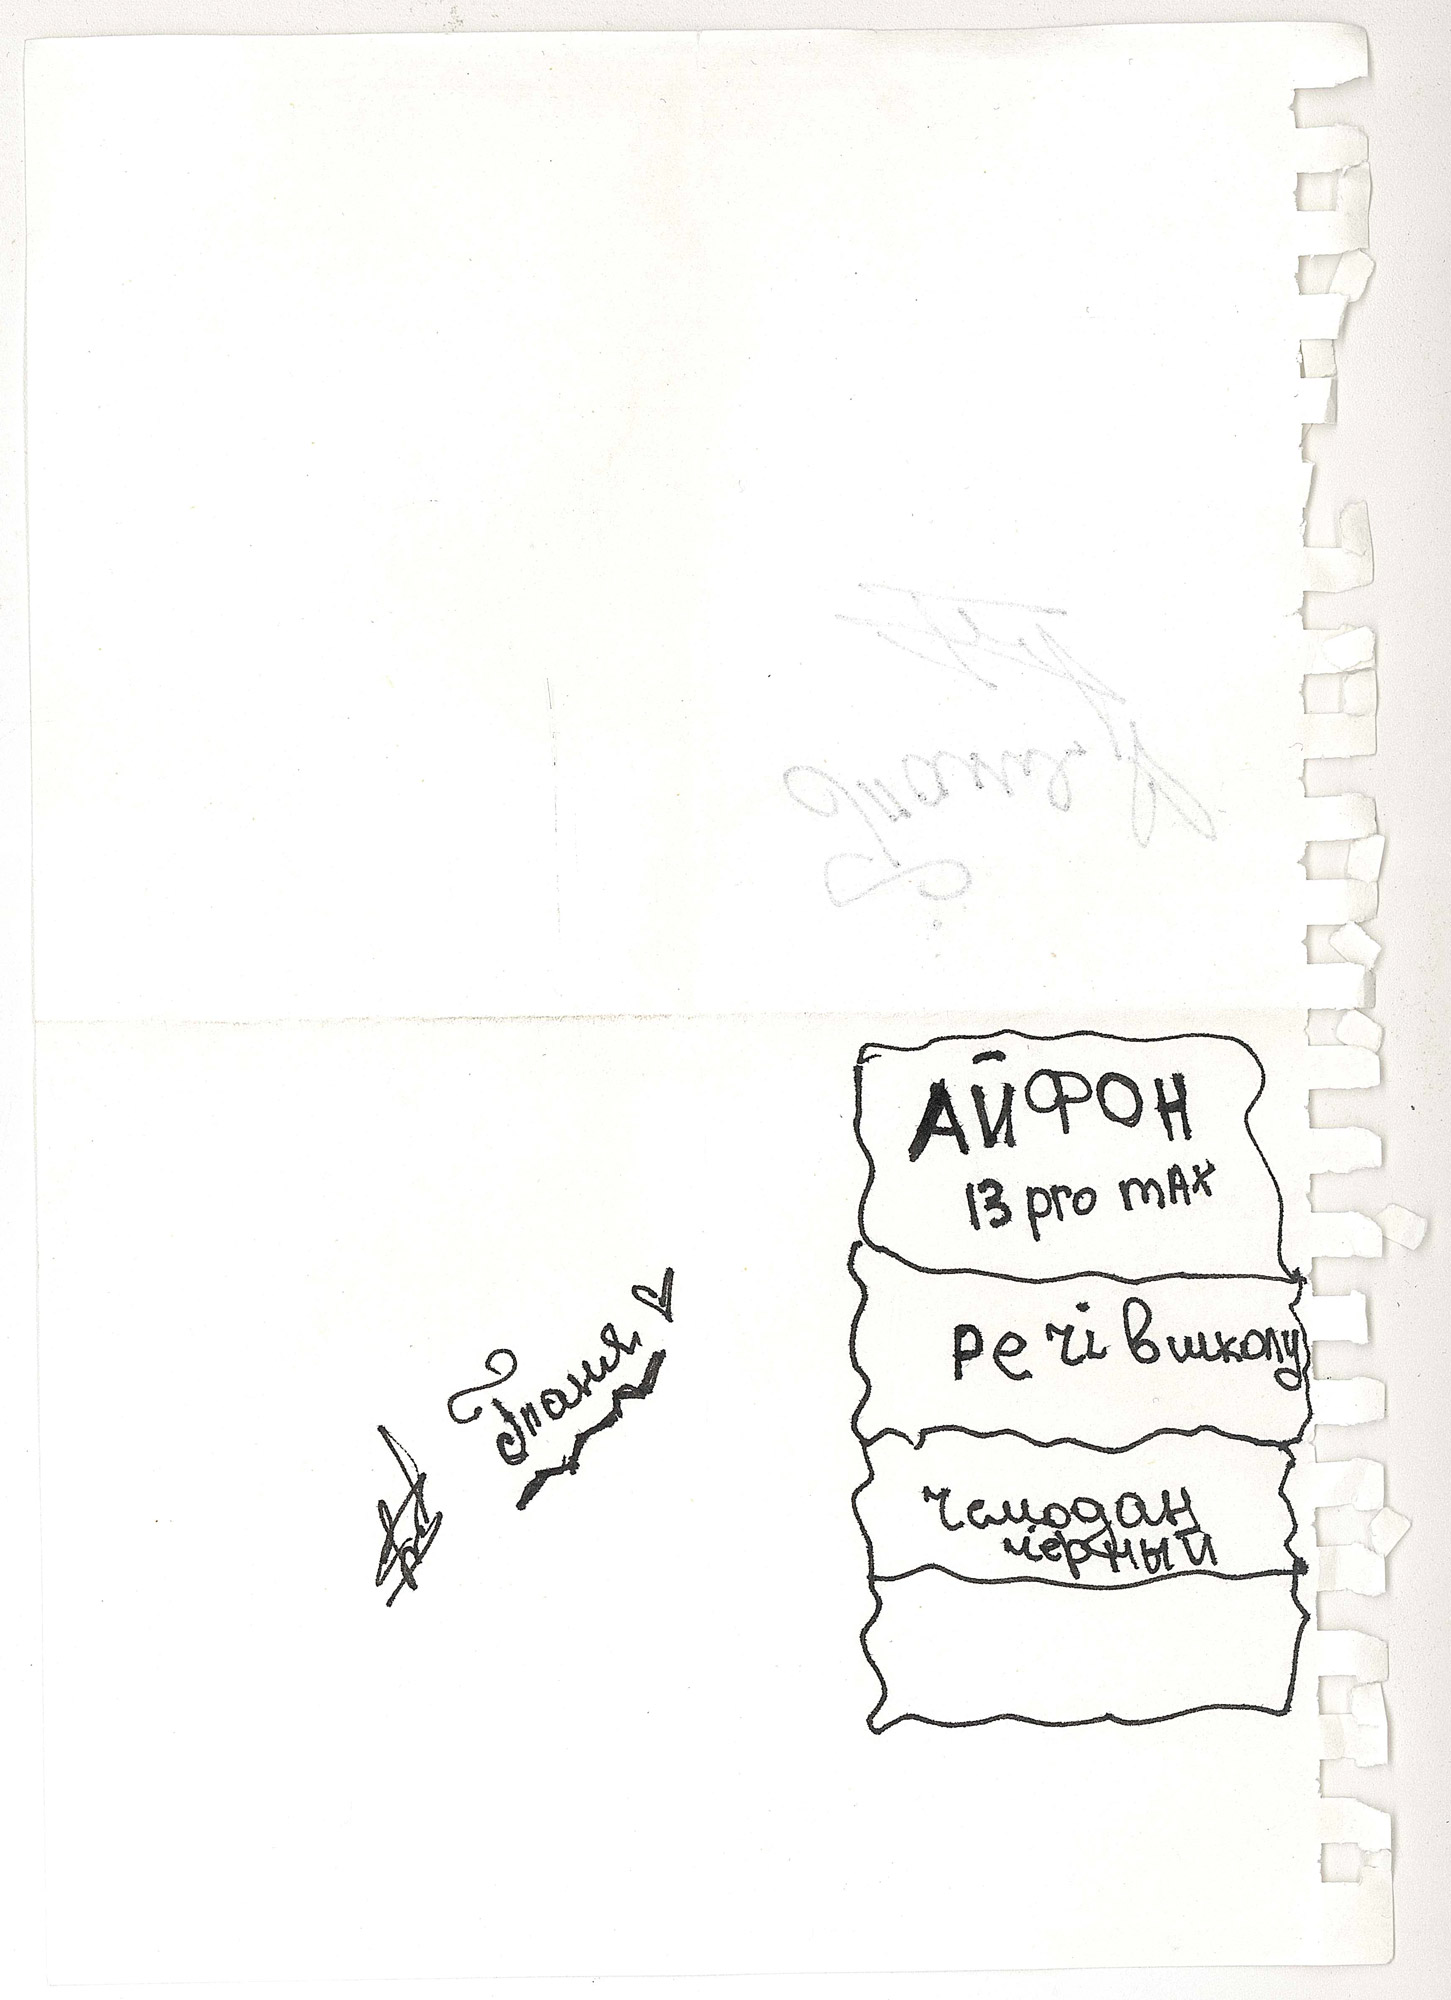 АЙФОН
13 pro mAx
Речі в школу
Чемодан
черный
Таня